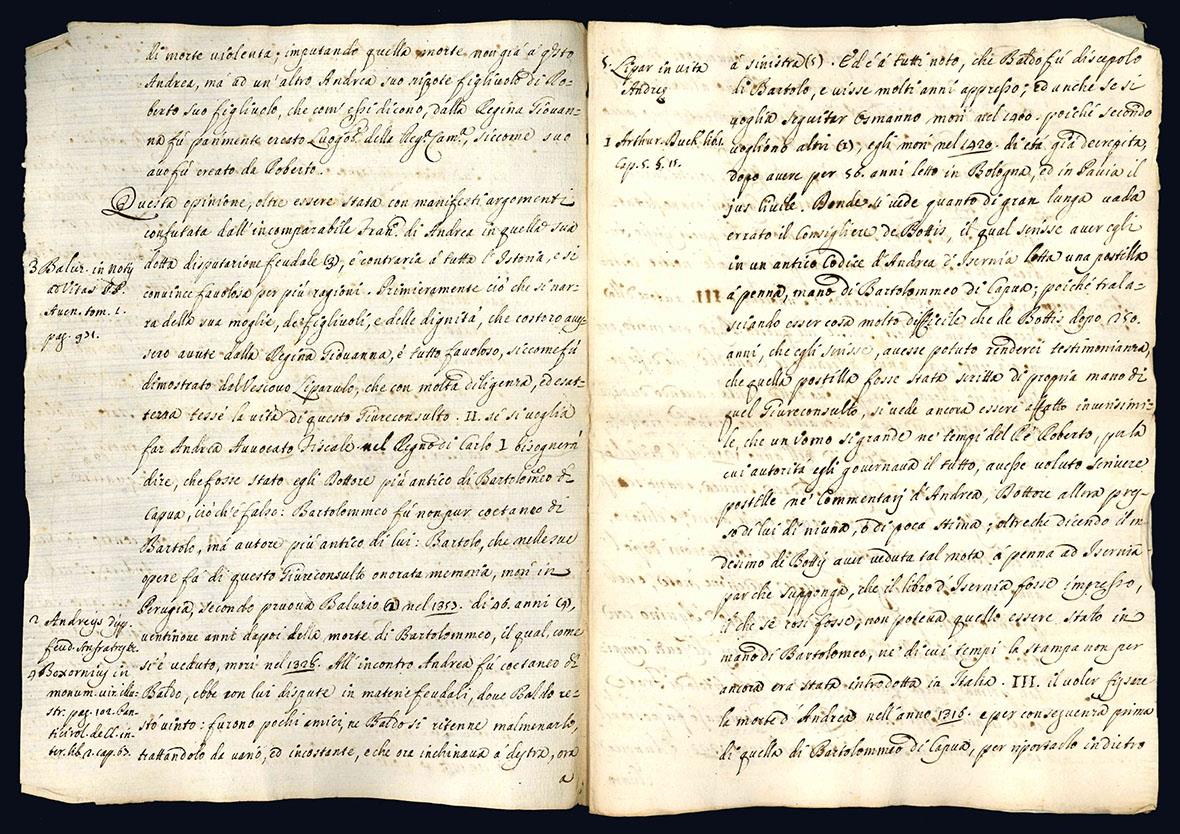 di morte violenta; imputando quella morte non già á qsto
Andrea, mà ad un'altro Andrea suo nipote figliuolo di Ro-
berto suo figliuolo, che com' essi dicono, dalla Regina Giovan-
na fú parimente creato Luogot. della Reg.ª Cam.ª, siccome suo
avo fú creato da Roberto.
Questa opinione, oltre essere stata con manifesti argomenti
confutata dall'incomparabile Fran.º di Andrea in quella sua
dotta disputazione feudale (2), é contraria á tutta l'Istoria, e si
convince favolosa per più ragioni. Primieramente ció che si nar-
ra della sua moglie, de figliuoli, e delle dignitá, che costoro aves
sero avute dalla Regina Giovanna, é tutto favoloso, siccome fú
dimostrato dal Vescovo Liparulo, che con molta diligenza, ed esat-
tezza tessé la vita di questo Giureconsulto. II. se si voglia
far Andrea Avvocato Fiscale nel Regno di Carlo I bisognerá
dire, che fosse stato egli Dottore più antico di Bartolomeo di
Capua, ció ch'é falso: Bartolommeo fú non pur coetaneo di
Bartolo, má autore piú antico di lui: Bartolo, che nelle sue
opere fá di questo Giureconsulto onorata memoria, morí in
Perugia, secondo pruova Baluzio (3) nel 1353. di 46. anni (4),
ventinove anni dapoi della morte di Bartolommeo, il qual, come
si é veduto, morí nel 1328. All'incontro Andrea fú coetaneo di
Baldo, ebbe con lui dispute in materie feudali, dove Baldo re-
stó vinto: furono pochi amici, ne Baldo si ritenne malmenarlo,
trattandolo da vano, ed incostante, e che ora inchinava á destra, ora
a
3 Baluz. in notis
ad Vitas PP.
Aven. tom. 1.
pag. 931.
2 Andreys disp.
feud. An fratres
4 Boxornius in
monum. vir. illu-
str. pag. 102. Pan-
cirol. de cl. in-
ter. lib. 2. cap. 67.
á sinistra (5). Ed é á tutti noto, che Baldo fú discepolo
di Bartolo, e visse molti anni appresso; ed anche se si
voglia seguitar Osmanno morí nel 1400. poiché secondo
vogliono altri (1), egli morí nel 1420. di etá giá decrepita,
dopo avere per 56. anni letto in Bologna, ed in Pavia il
jus Civile. Donde si vede quanto di gran lunga vada
errato il Consigliere de Bottis, il qual scrisse aver egli
in un antico Codice d'Andrea d'Isernia letta una postilla
á penna, mano di Bartolommeo di Capua; poiché trala-
sciando esser cosa molto difficile che de Bottis dopo 250.
anni, che egli scrisse, avesse potuto renderci testimonianza,
che quella postilla fosse stata scritta di propria mano di
quel Giureconsulto, si vede ancora essere affatto inverisimi-
le, che un Uomo si grande ne' tempi del Ré Roberto, per la
cui autoritá egli governava il tutto, avesse voluto scrivere
postille ne' Commentarj d'Andrea, Dottore allora pres-
so di lui di niuna, ó di poca stima; oltreche dicendo il me
desimo de Bottis aver veduta tal nota á penna ad Isernia
par che supponga, che il libro d'Isernia fosse impresso,
il che se cosí fosse, non poteva quello essere stato in
mano di Bartolomeo, ne' di cui tempi la stampa non per
ancora era stata introdotta in Italia. III. il voler fissare
la morte d'Andrea nell'anno 1316. e per conseguenza prima
di quella di Bartolommeo di Capua, per riportarlo indietro
5. Lipar in vita
Andreæ
1 Arthur. Duck lib. 1.
Cap. 5. §. 15.